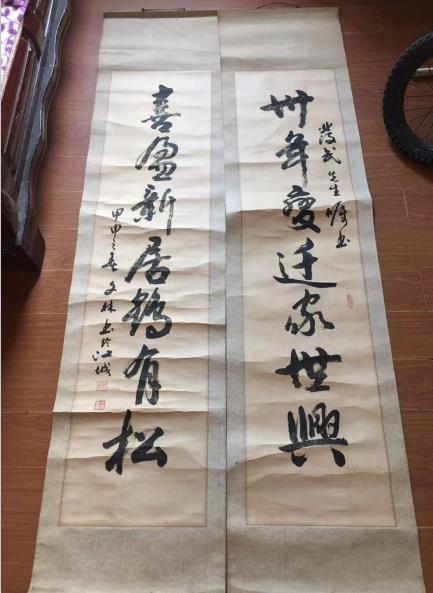 卅年變迁家世興
武先生嘱书
喜盈新居鶴有松
甲申之春文林书於江城